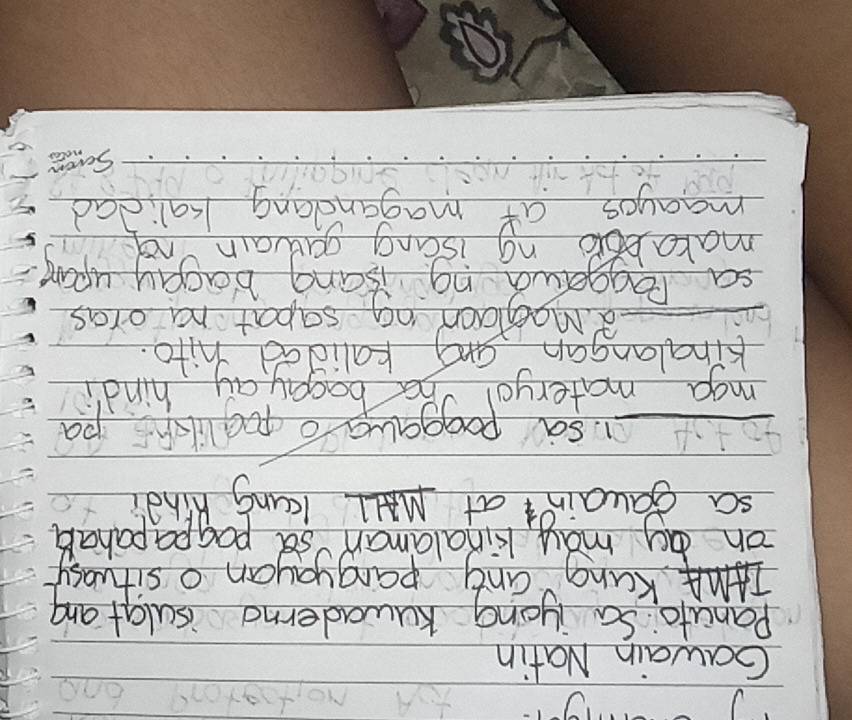 Gawain Natin
Panuto: Sa iyong kuwaderno isulat ang
TAMA kung ang pangyayari o sitwasy-
on ay may kinalaman sa pagpapahala
sa gawain at MALI kung hindi
1. sa paggawa o pagliliks pa
mga materyal na bagay ay hindi
kinalangan ang kalidad nito.
2. Maglaan ng sapat na oras
sa Paggawa ng isang bagay upang
makabuo ng isang gawain na
maayos at magandang kalidad
Seven notes